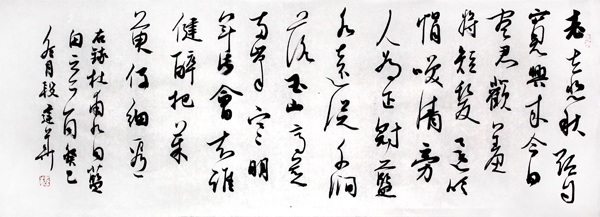 老去悲秋强自
寬興来今日
盡君歡羞
将短髮還吹
帽咲倩旁
人為正冠藍
水遠從千澗
落玉山高並
兩峰寒明
年此會知誰
健醉把茱
萸仔細看
右録杜甫九日藍
田之一首癸巳
八月段建華